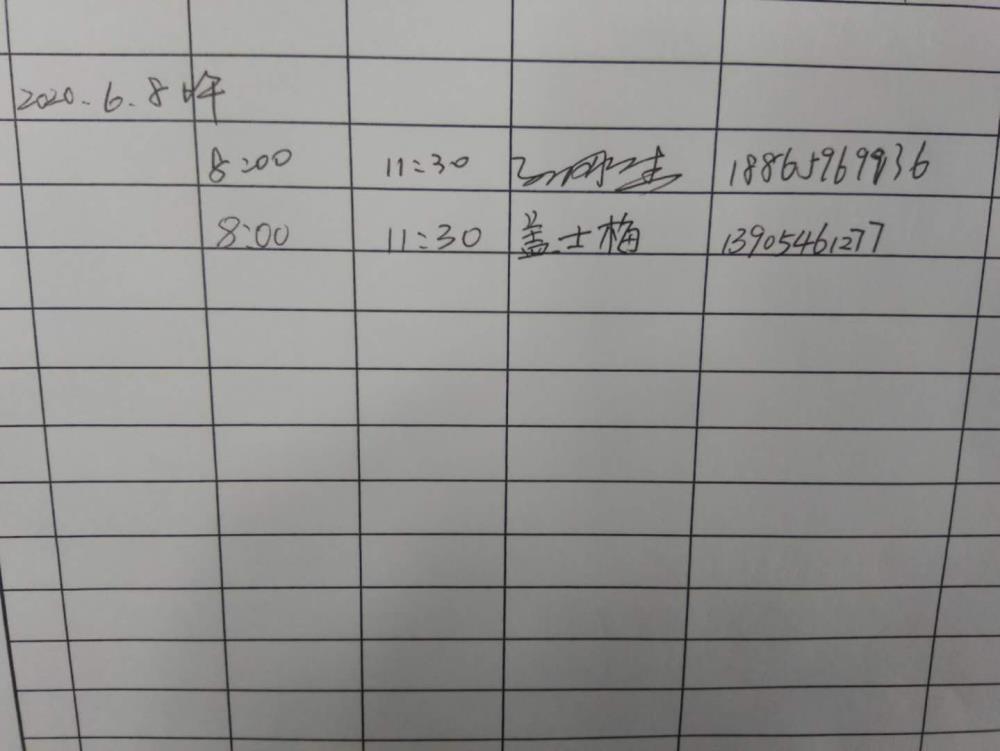 2020.6.8
8:00 11:30 18865969936
8:00 11:30 盖士梅 13905461277